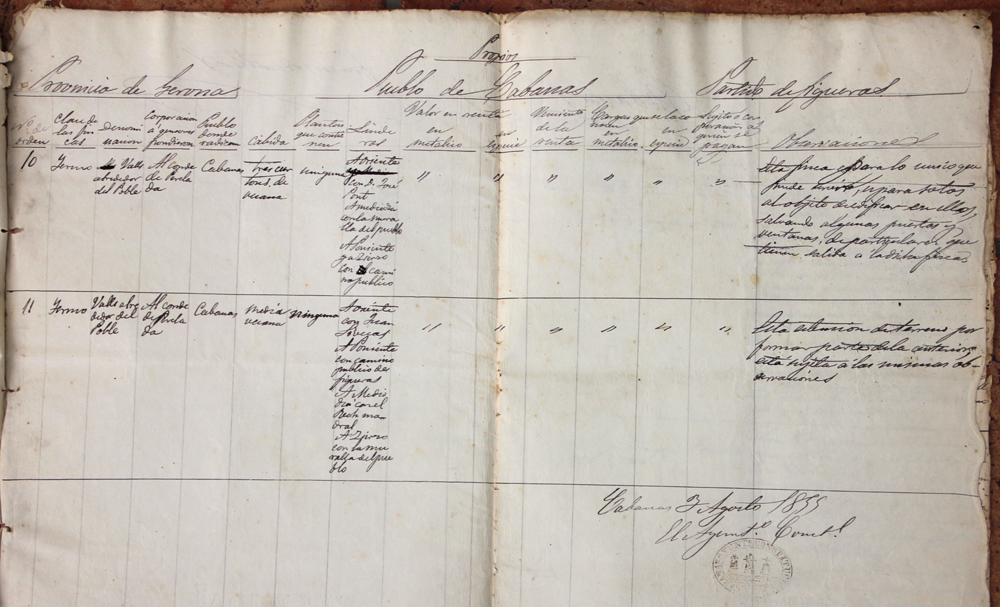 Propios
Provincia de Gerona
Pueblo de Cabanas
Partido de Figueras
Nº de
orden
Clase de
las fin
cas
Denomi
nacion
Corporacion
á quienes
Pueblo
donde
radican
Cabida
Plantios
que contie
nen
Linde
ros
Valor en venta
en
metalico
en
especie
Vencimiento
de la
renta
Cargas que se hacen
en
metalico
en
especie
Sujetos o cor
á
quien se
pagan
Observaciones
10
Yermo
Valls
alrededor
del Poble
Al Conde
de Perela
da
Cabanas
tres cuar
tons de
vesana
ninguno
A oriente
con D. José
Pont
A mediodia
con la mura
lla del pueblo
A Poniente
y a Zierzo
con el cami
no publico
"
"
"
"
"
"
Esta finca es para lo unico que
puede servir, es para solos
al objeto de edificar en ellos,
salvando algunas puertas y
ventanas, de particulares que
tienen salida a la dicha finca.
11
Yermo
Valls alre
dedor del
Poble
Al Conde
de Perela
da
Cabanas
media
vesana
ninguno
A oriente
con Juan
A Poniente
con camino
publico de
figueras
A Medio
dia con el
Rech ma
dral
A Zierzo
con la mu
ralla del pue
blo
"
"
"
"
"
"
Esta estencion de terreno por
formar parte de la anterior
está sujeta a las mismas ob-
servaciones
Cabanas 3 Agosto 1855
El Ayunt.º Const.l